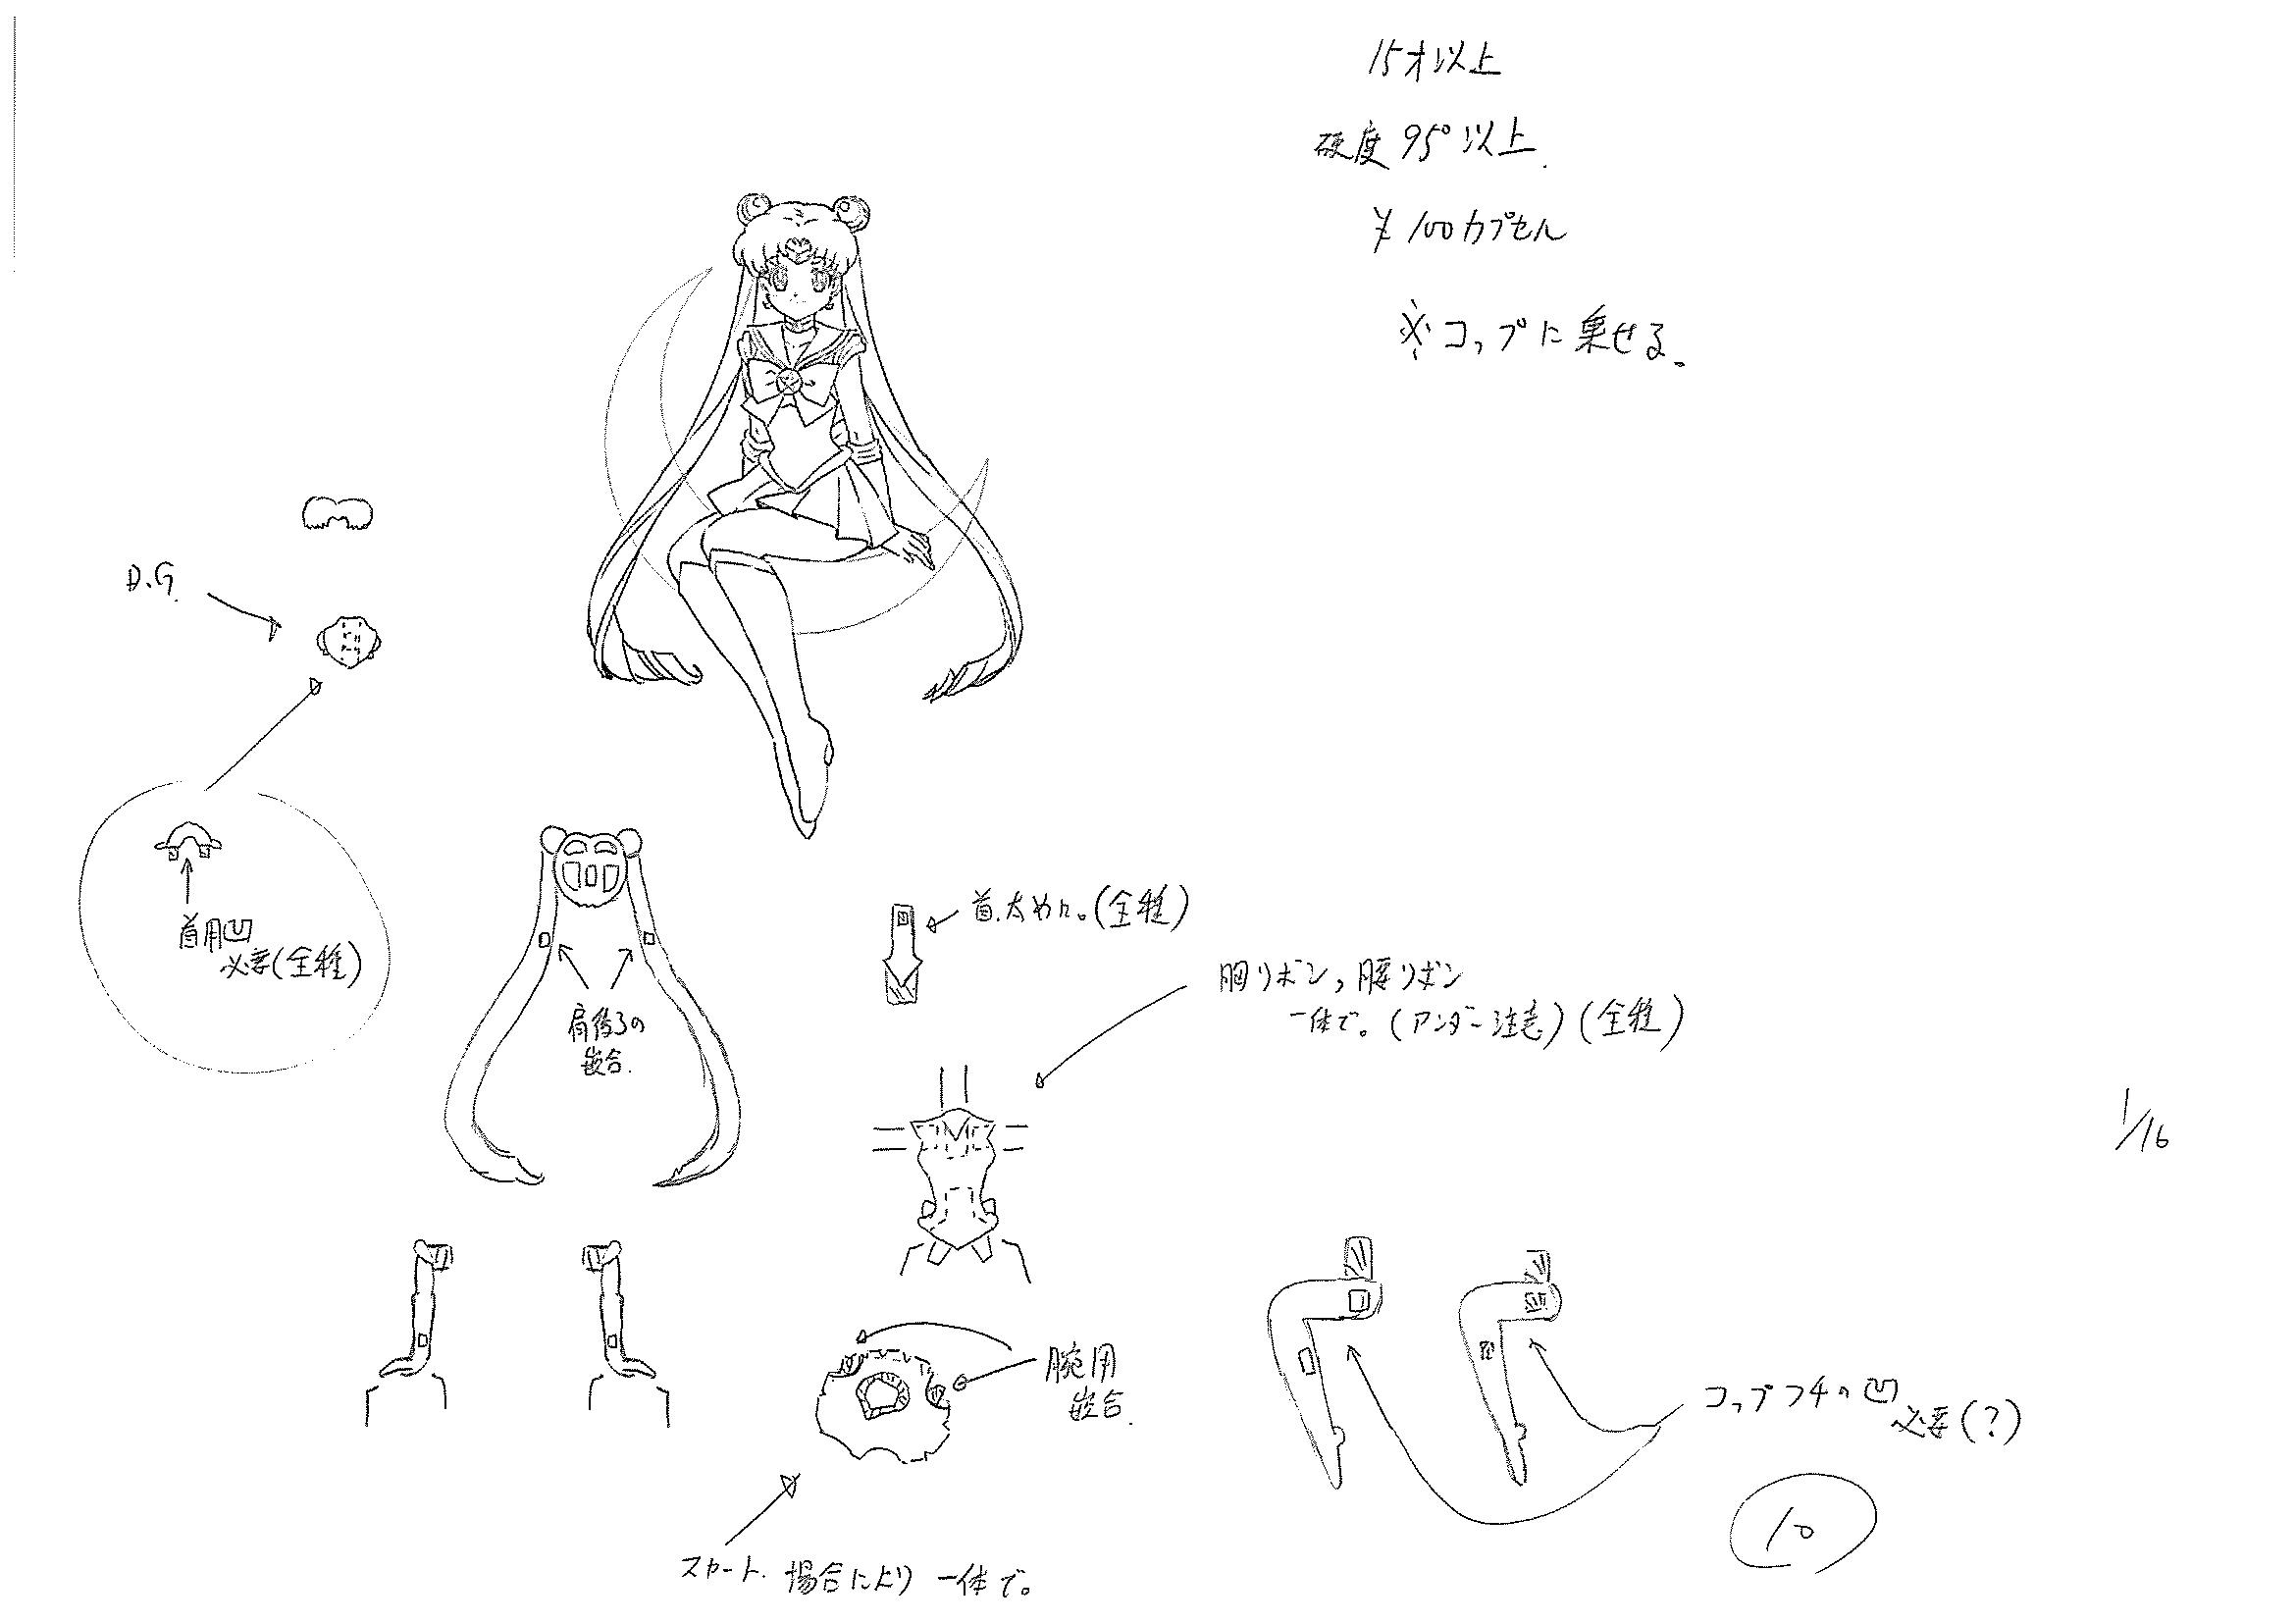 15才以上
硬度 95°以上.
¥100カプセル
※コップに乗せる。
D.G.
首用凹
必要(全種)
肩後ろの
嵌合.
首.太めに。(全種)
胸リボン,腰リボン
一体で。(アンダー注意)(全種)
1/16
腕用
嵌合.
コップフチの凹
必要(?)
10
スカート. 場合により 一体で。